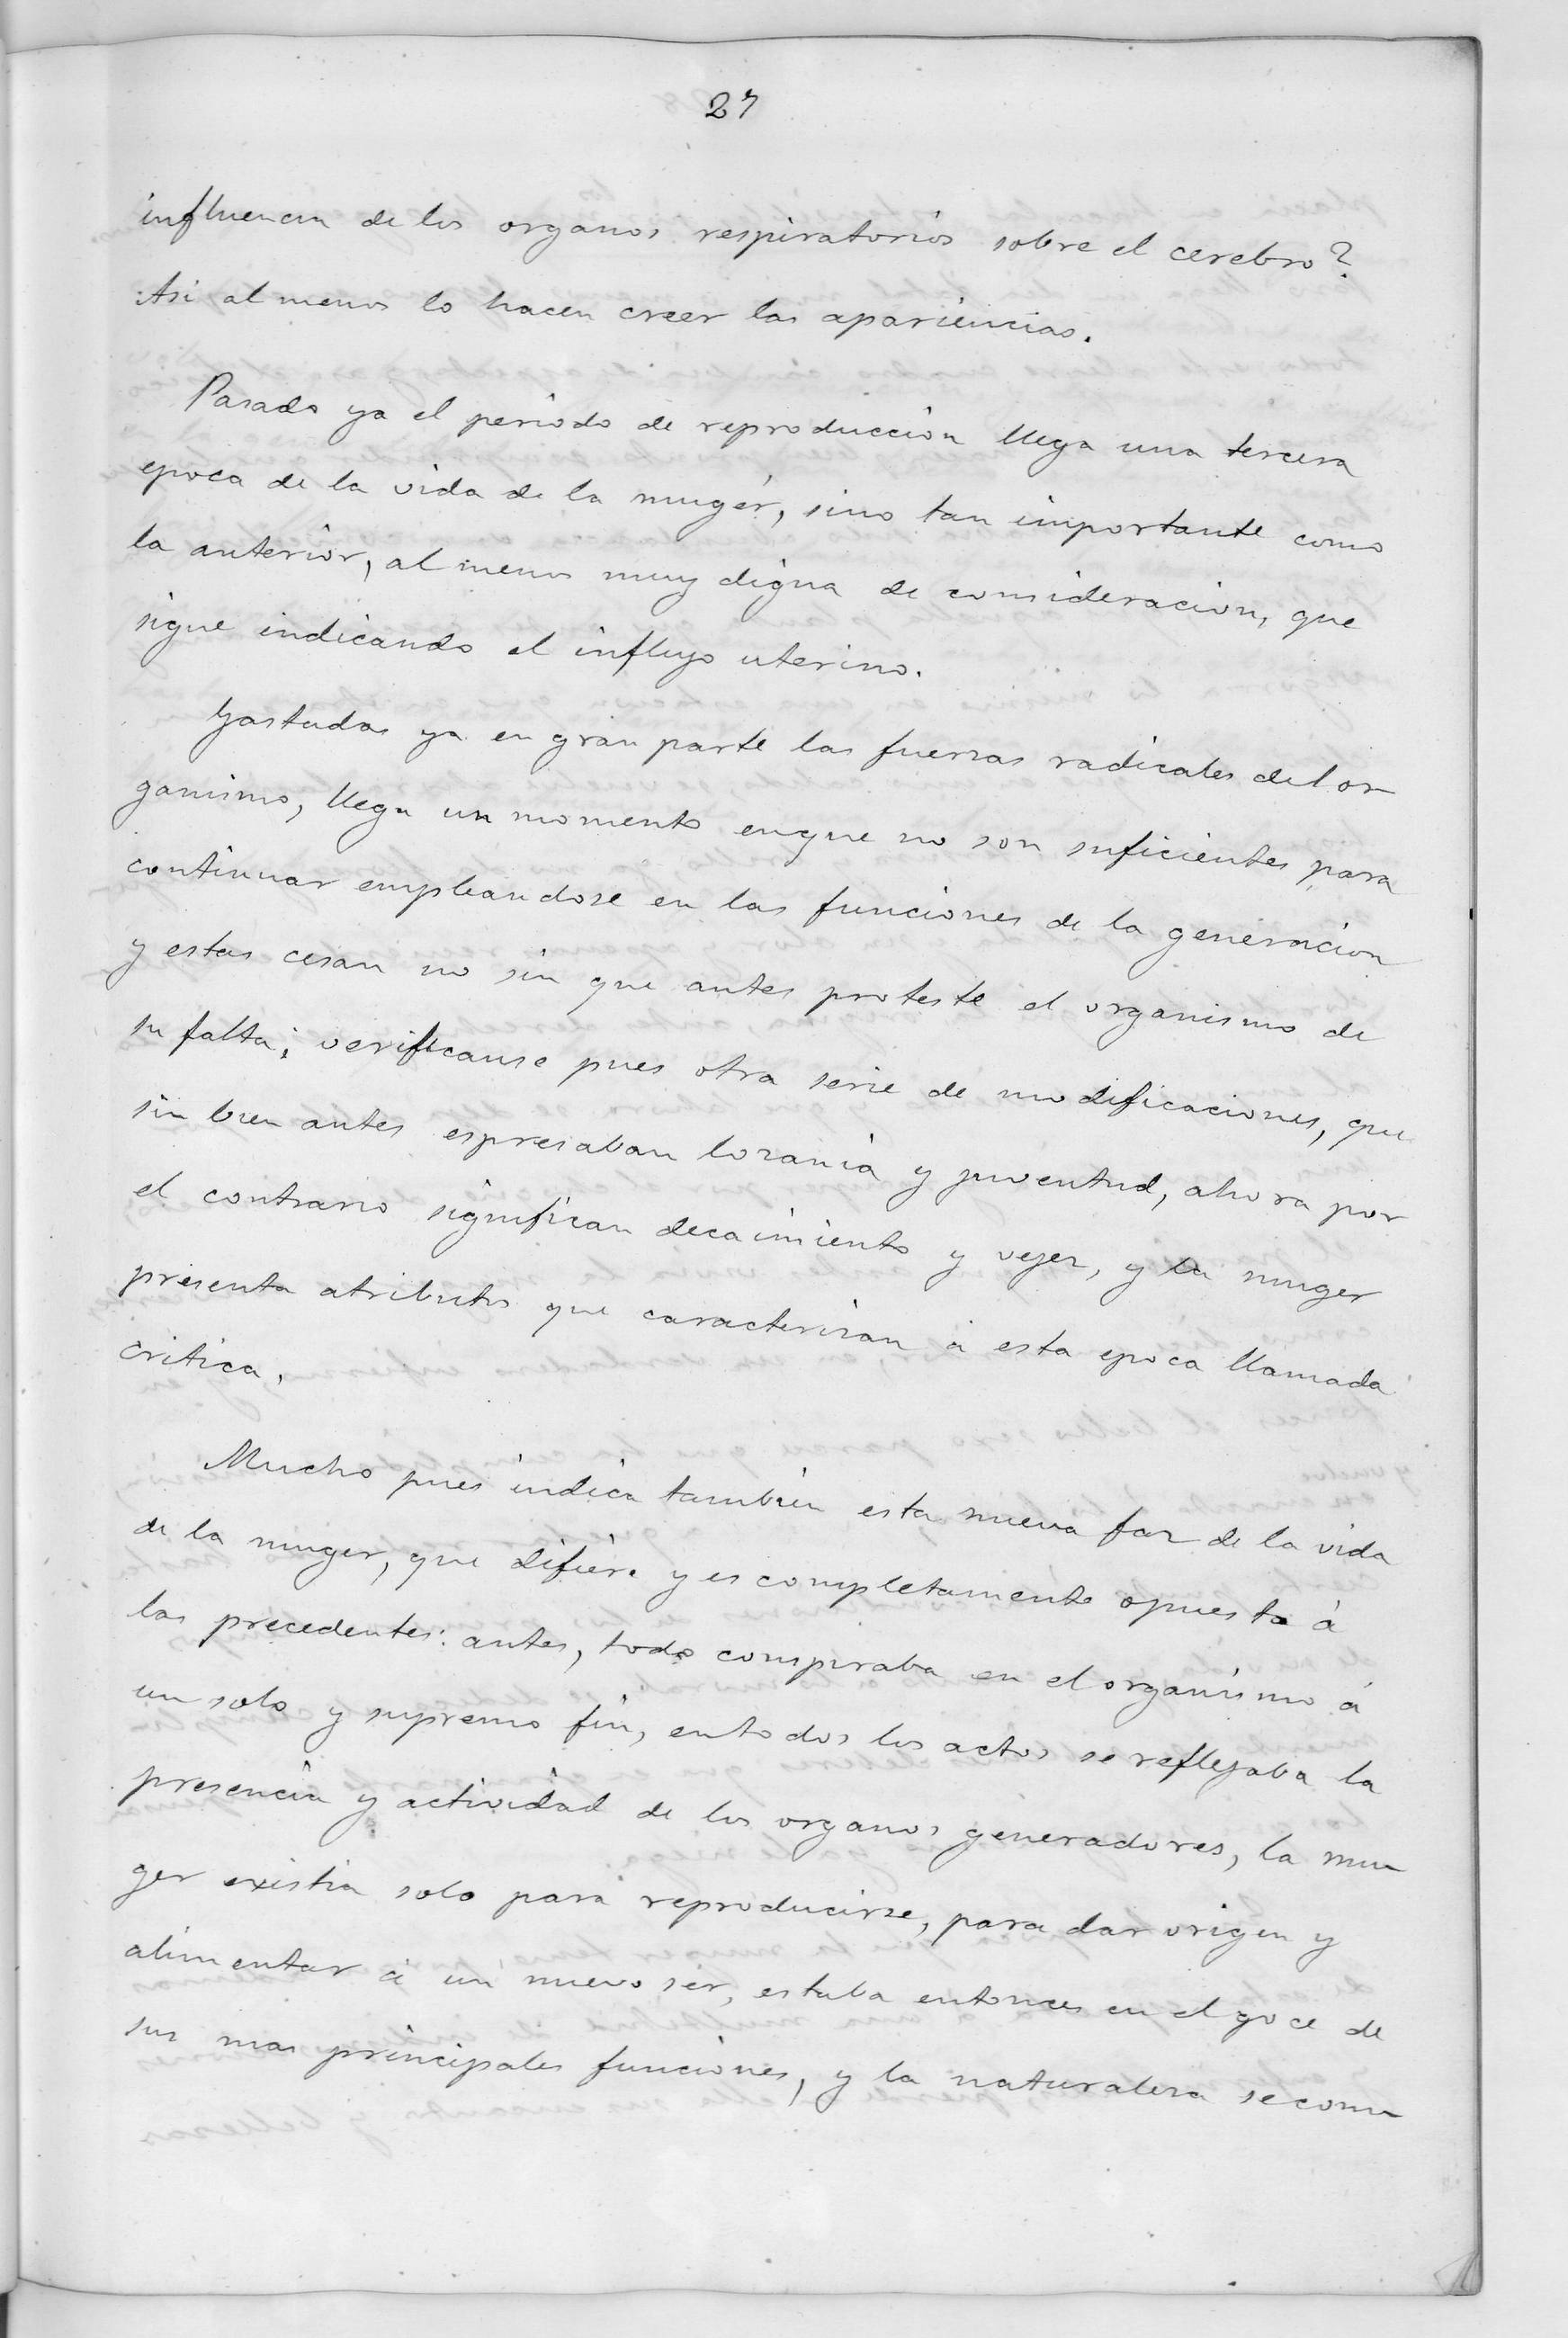 27
influencia de los organos respiratorios sobre el cerebro?
Asi al menos lo hacen creer las apariencias.
Pasado ya el periodo de reproduccion llega una tercera
epoca de la vida de la mugér, sino tan importante como
la anterior, al menos muy digna de consideracion, que
sigue indicando el influjo uterino.
Gastadas ya en gran parte las fuerzas radicales del or
ganismo, llega un momento enque no son suficientes para
continuar empleandose en las funciones de la generacion
y estas cesan no sin que antes proteste el organismo de
su falta; verificanse pues otra serie de modificaciones, que
sin bien antes espresaban lozania y juventud, ahora por
el contrario significan decaimiento y vejez, y la muger
presenta atributos que caracterizan á esta epoca llamada
critica.
Mucho pues indica tambien esta nueva faz de la vida
de la muger, que difiere y es completamente opuesta á
las precedentes: antes, todo conspiraba en el organismo á
un solo y supremo fin, en todos los actos se reflejaba la
presencia y actividad de los organos generadores, la mu
ger existia solo para reproducirse, para dar origen y
alimentar á un nuevo ser, estaba entonces en el goce de
sus mas principales funciones, y la naturaleza se com